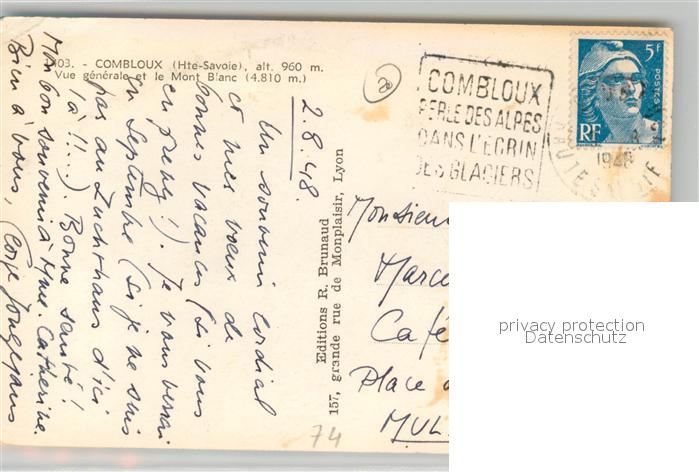 1403. - COMBLOUX (Hte-Savoie), alt. 960 m.
Vue générale et le Mont Blanc (4.810 m.)
2.8.48.
Un souvenir cordial
et mes voeux de
bonnes vacances (si vous
en prenez!). Je vous verrai
en Septembre (si je ne suis
pas au Zuchthaus d'ici
là!!...). Bonne santé!
Mon bon souvenir à Mme. Catherine.
Bien à vous,
Editions R. Brunaud
157, grande rue de Monplaisir, Lyon
COMBLOUX
PERLE DES ALPES
DANS L'ÉCRIN
DES GLACIERS
5F
POSTES
RF
1948
HAUTE-SAVOIE
Monsieur
Marce
Café
Place d
MUL
privacy protection
Datenschutz
74